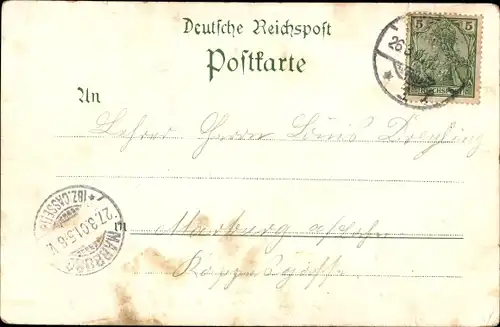 Deutsche Reichspost
Postkarte
5 5
REICHSPOST
26.3.
An
Lehrer Herrn Louis
MARBURG
(BZ. CASSEL)
27.3.01.5-6.V.
in
Marburg a/Lahn